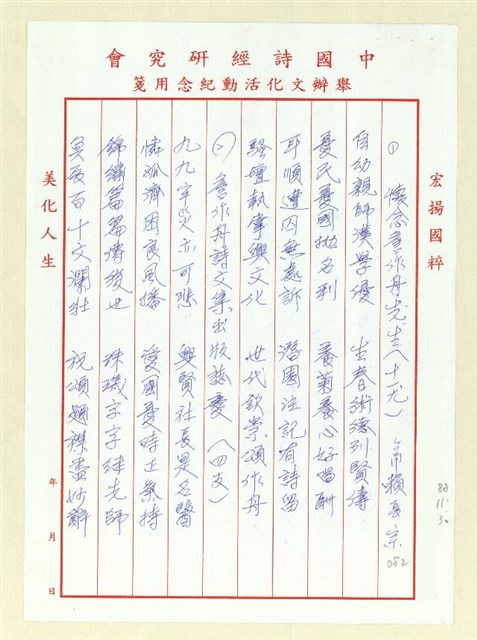 中國詩經研究會
舉辦文化活動紀念用箋
宏揚國粹
88.11.30
① 懷念詹作舟先生(十一尤) 弟賴長宗 082
自幼親師漢學優 生春術德列賢儔
憂民憂國拋名利 養菊養心好唱酬
耳順遭囚無處訴 潛園注記有詩留
騷壇執筆興文化 世代欽崇頌作舟
㈡ 詹作舟詩文集出版誌慶 (四支)
九九牢災亦可悲 興賢社長是名醫
憐孤濟困良風播 愛國憂時正氣持
錦繡篇篇傳後世 珠璣字字 先師
冥辰百十文瀾壯 祝頌題襟盡妙辭
美化人生
年 月 日